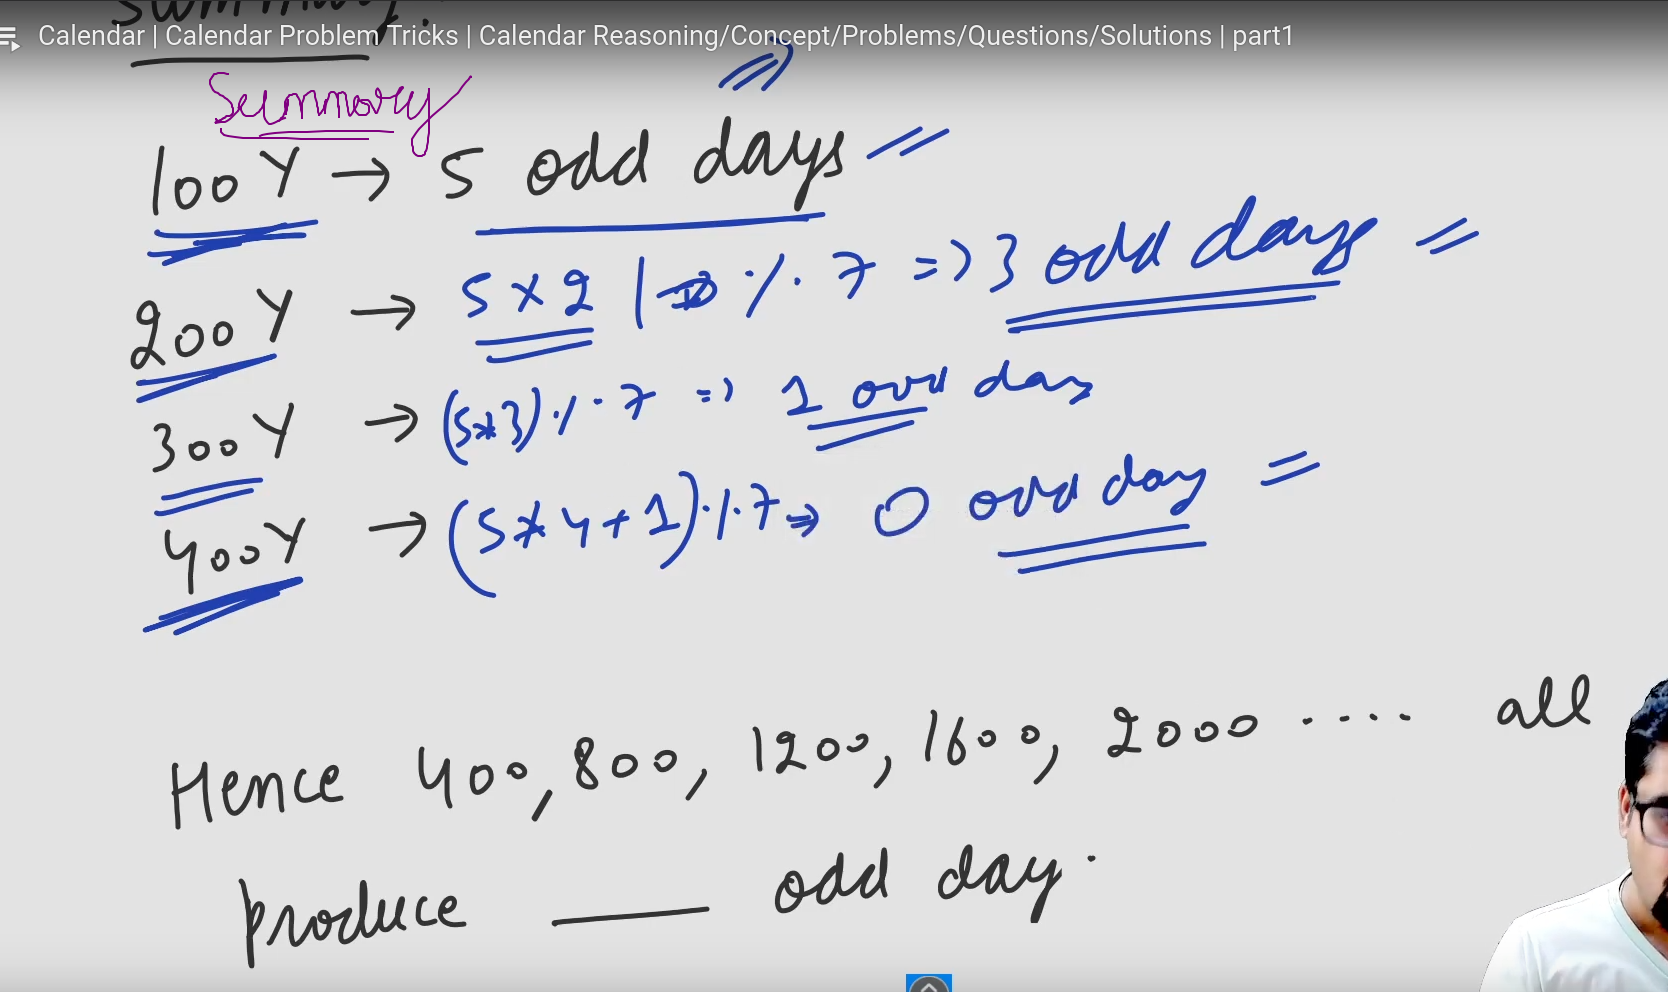 Summary:
Calendar | Calendar Problem Tricks | Calendar Reasoning/Concept/Problems/Questions/Solutions | part1
Summary
100Y → 5 odd days
200Y → 5 × 2 | 10 % 7 => 3 odd days
300Y → (5*3) % 7 => 1 odd day
400Y → (5*4+1) % 7 => 0 odd day
Hence 400, 800, 1200, 1600, 2000 ..... all
produce ___ odd day.